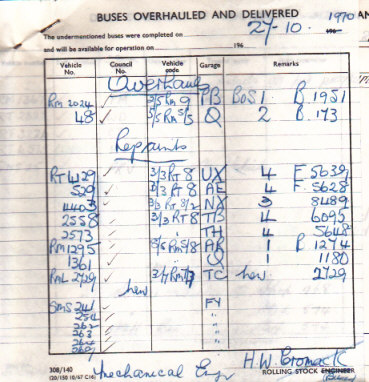 BUSES OVERHAULED AND DELIVERED
The undermentioned buses were completed on 27-10- 1970
and will be available for operation on 196
Vehicle No. Council No. Vehicle code Garage Remarks
Overhauls
RM 2024 ✓ 5/5 RM 9 PB BOS 1 B.1951
48 ✓ 5/5 RM 5/8 Q 2 B.173
Repaints
RT 4129 ✓ 3/3 RT 8 UX 4 F 5639
529 ✓ 3/3 RT 8 AE 4 F. 5628
4403 NX 3 8489
2558 3/3 RT 8 TB 4 6095
2573 " TH 4 5648
RM 1295 5/5 RM 5/8 AR 1 B 1274
1361 " Q 1 1180
RML 2729 TC new 2729
new
SMS 241 FY
254 "
262 "
263 "
264 "
269 "
308/140 H.W. Cromack
(20/150 10/67 C14) Mechanical Engr ROLLING STOCK ENGINEER